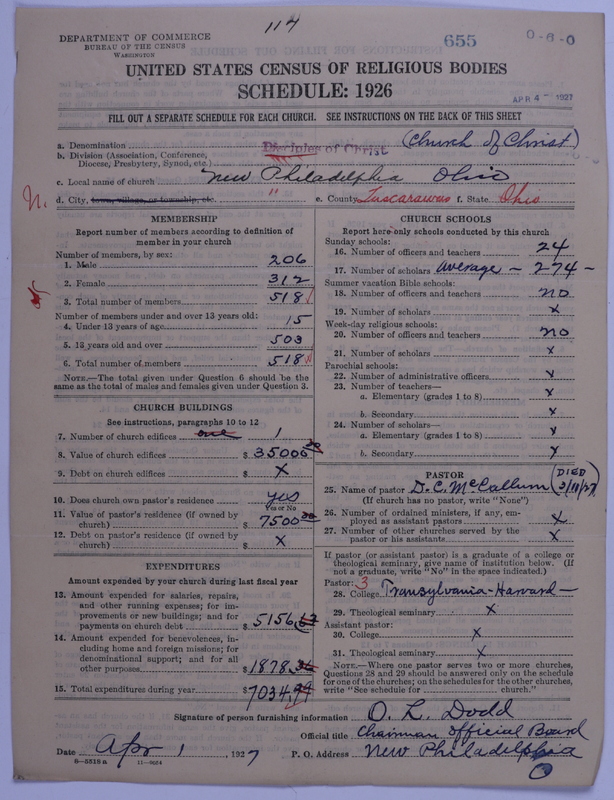 114
DEPARTMENT OF COMMERCE
BUREAU OF THE CENSUS
WASHINGTON
655
0-6-0
UNITED STATES CENSUS OF RELIGIOUS BODIES
SCHEDULE: 1926
APR 4 - 1927
FILL OUT A SEPARATE SCHEDULE FOR EACH CHURCH. SEE INSTRUCTIONS ON THE BACK OF THIS SHEET
a. Denomination Disciples of Christ (Church of Christ)
b. Division (Association, Conference, Diocese, Presbytery, Synod, etc.)
c. Local name of church New Philadelphia Ohio
d. City, town, village, or township, etc. " e. County Tuscarawas f. State Ohio
N.
MEMBERSHIP
Report number of members according to definition of member in your church
Number of members, by sex:
1. Male 206
2. Female 312
3. Total number of members 518
Number of members under and over 13 years old:
4. Under 13 years of age 15
5. 13 years old and over 503
6. Total number of members 518
NOTE.—The total given under Question 6 should be the same as the total of males and females given under Question 3.
CHURCH BUILDINGS
See instructions, paragraphs 10 to 12
7. Number of church edifices one 1
8. Value of church edifices $ 35000 00
9. Debt on church edifices $ X
10. Does church own pastor's residence yes
Yes or No
11. Value of pastor's residence (if owned by church) $ 7500 00
12. Debt on pastor's residence (if owned by church) $ X
EXPENDITURES
Amount expended by your church during last fiscal year
13. Amount expended for salaries, repairs, and other running expenses; for improvements or new buildings; and for payments on church debt $ 5156.63
14. Amount expended for benevolences, including home and foreign missions; for denominational support; and for all other purposes $ 1878.
15. Total expenditures during year $ 7034.
CHURCH SCHOOLS
Report here only schools conducted by this church
Sunday schools:
16. Number of officers and teachers 24
17. Number of scholars average - 274 -
Summer vacation Bible schools:
18. Number of officers and teachers no
19. Number of scholars x
Week-day religious schools:
20. Number of officers and teachers no
21. Number of scholars x
Parochial schools:
22. Number of administrative officers x
23. Number of teachers—
a. Elementary (grades 1 to 8) x
b. Secondary x
24. Number of scholars—
a. Elementary (grades 1 to 8) x
b. Secondary x
PASTOR
25. Name of pastor D. C. McCallum (DIED 3/18/27)
(If church has no pastor, write "None")
26. Number of ordained ministers, if any, employed as assistant pastors x
27. Number of other churches served by the pastor or his assistants x
If pastor (or assistant pastor) is a graduate of a college or theological seminary, give name of institution below. (If not a graduate, write "No" in the space indicated.)
Pastor: 3
28. College Transylvania-Harvard-
29. Theological seminary x
Assistant pastor:
30. College x
31. Theological seminary x
NOTE.—Where one pastor serves two or more churches, Questions 28 and 29 should be answered only on the schedule for one of the churches; on the schedules for the other churches, write "See schedule for church."
Signature of person furnishing information O. L. Dodd
Official title Chairman Official Board
Date Apr 1, 1927 P. O. Address New Philadelphia
O
8—5518 a 11—9054